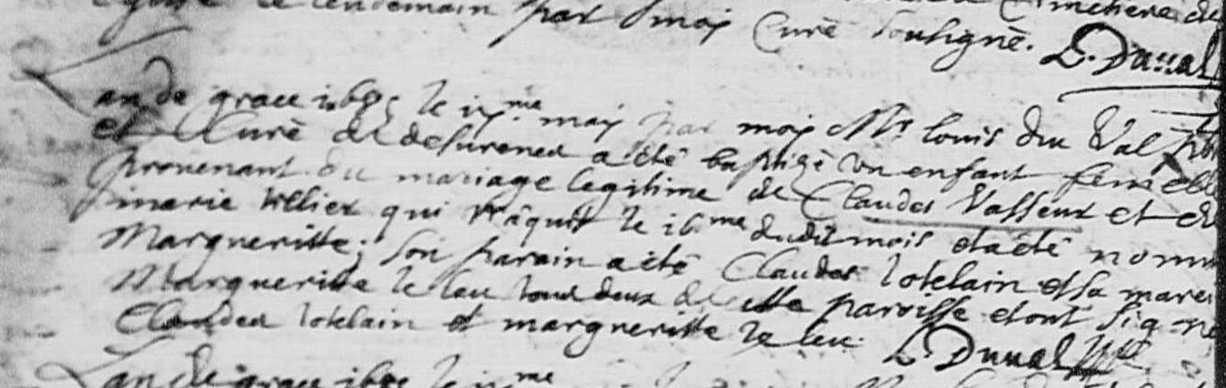 le lendemain par moy Curé soussigné. L. Duval
Lan de grace le me may par moy Mre louis du Val pbr
et Curé de desurenes a été baptizé un enfant femelle
provenant du mariage legitime de Claudes Vasseur et de
marie tellier qui nâquit le 16me dudit mois et a été nomm
Margueritte; son parain a été Claudes lotelain et sa marei
Margueritte le leu tous deux de cette paroisse et ont signe
Claudes lotelain et margueritte le leu. L. Duval pbr
Lan de grace le me